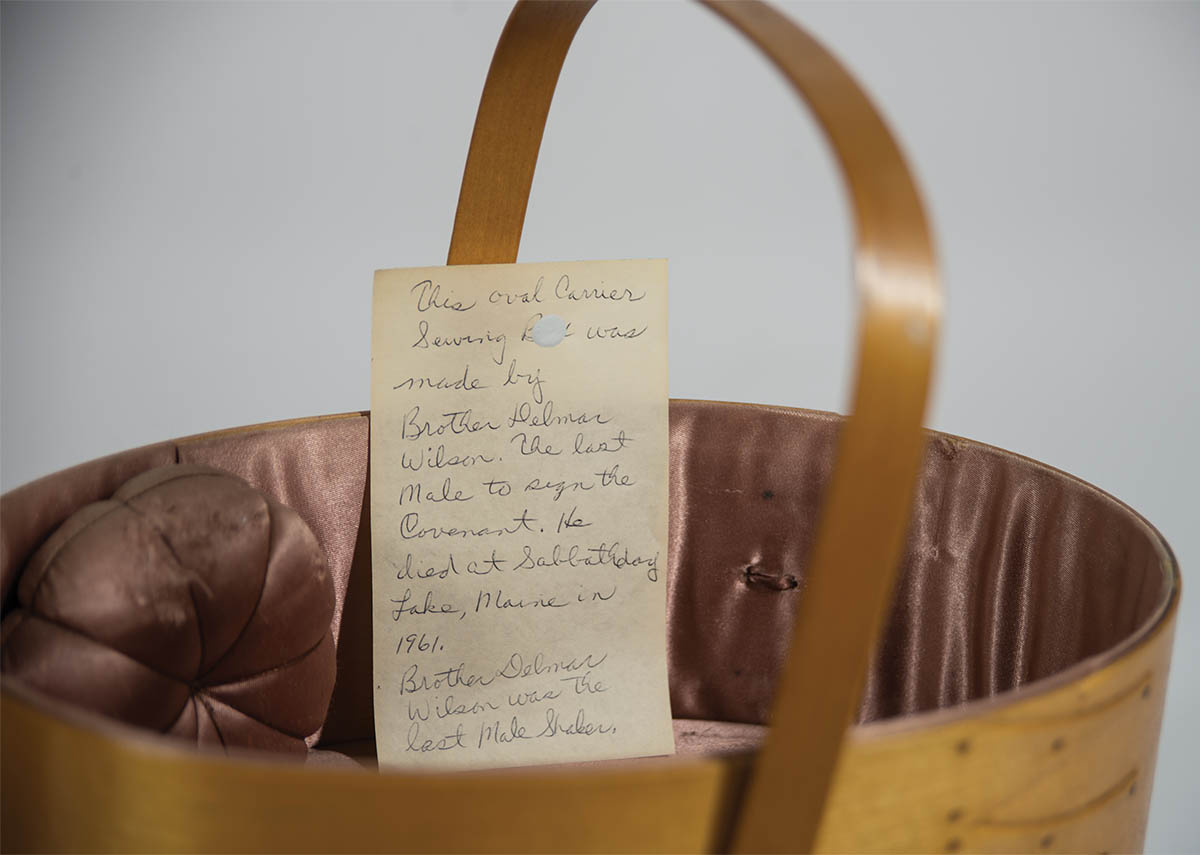 This oval Carrier
Sewing Box was
made by
Brother Delmar
Wilson. The last
Male to sign the
Covenant. He
died at Sabbathday
Lake, Maine in
1961.
Brother Delmar
Wilson was the
last Male Shaker.